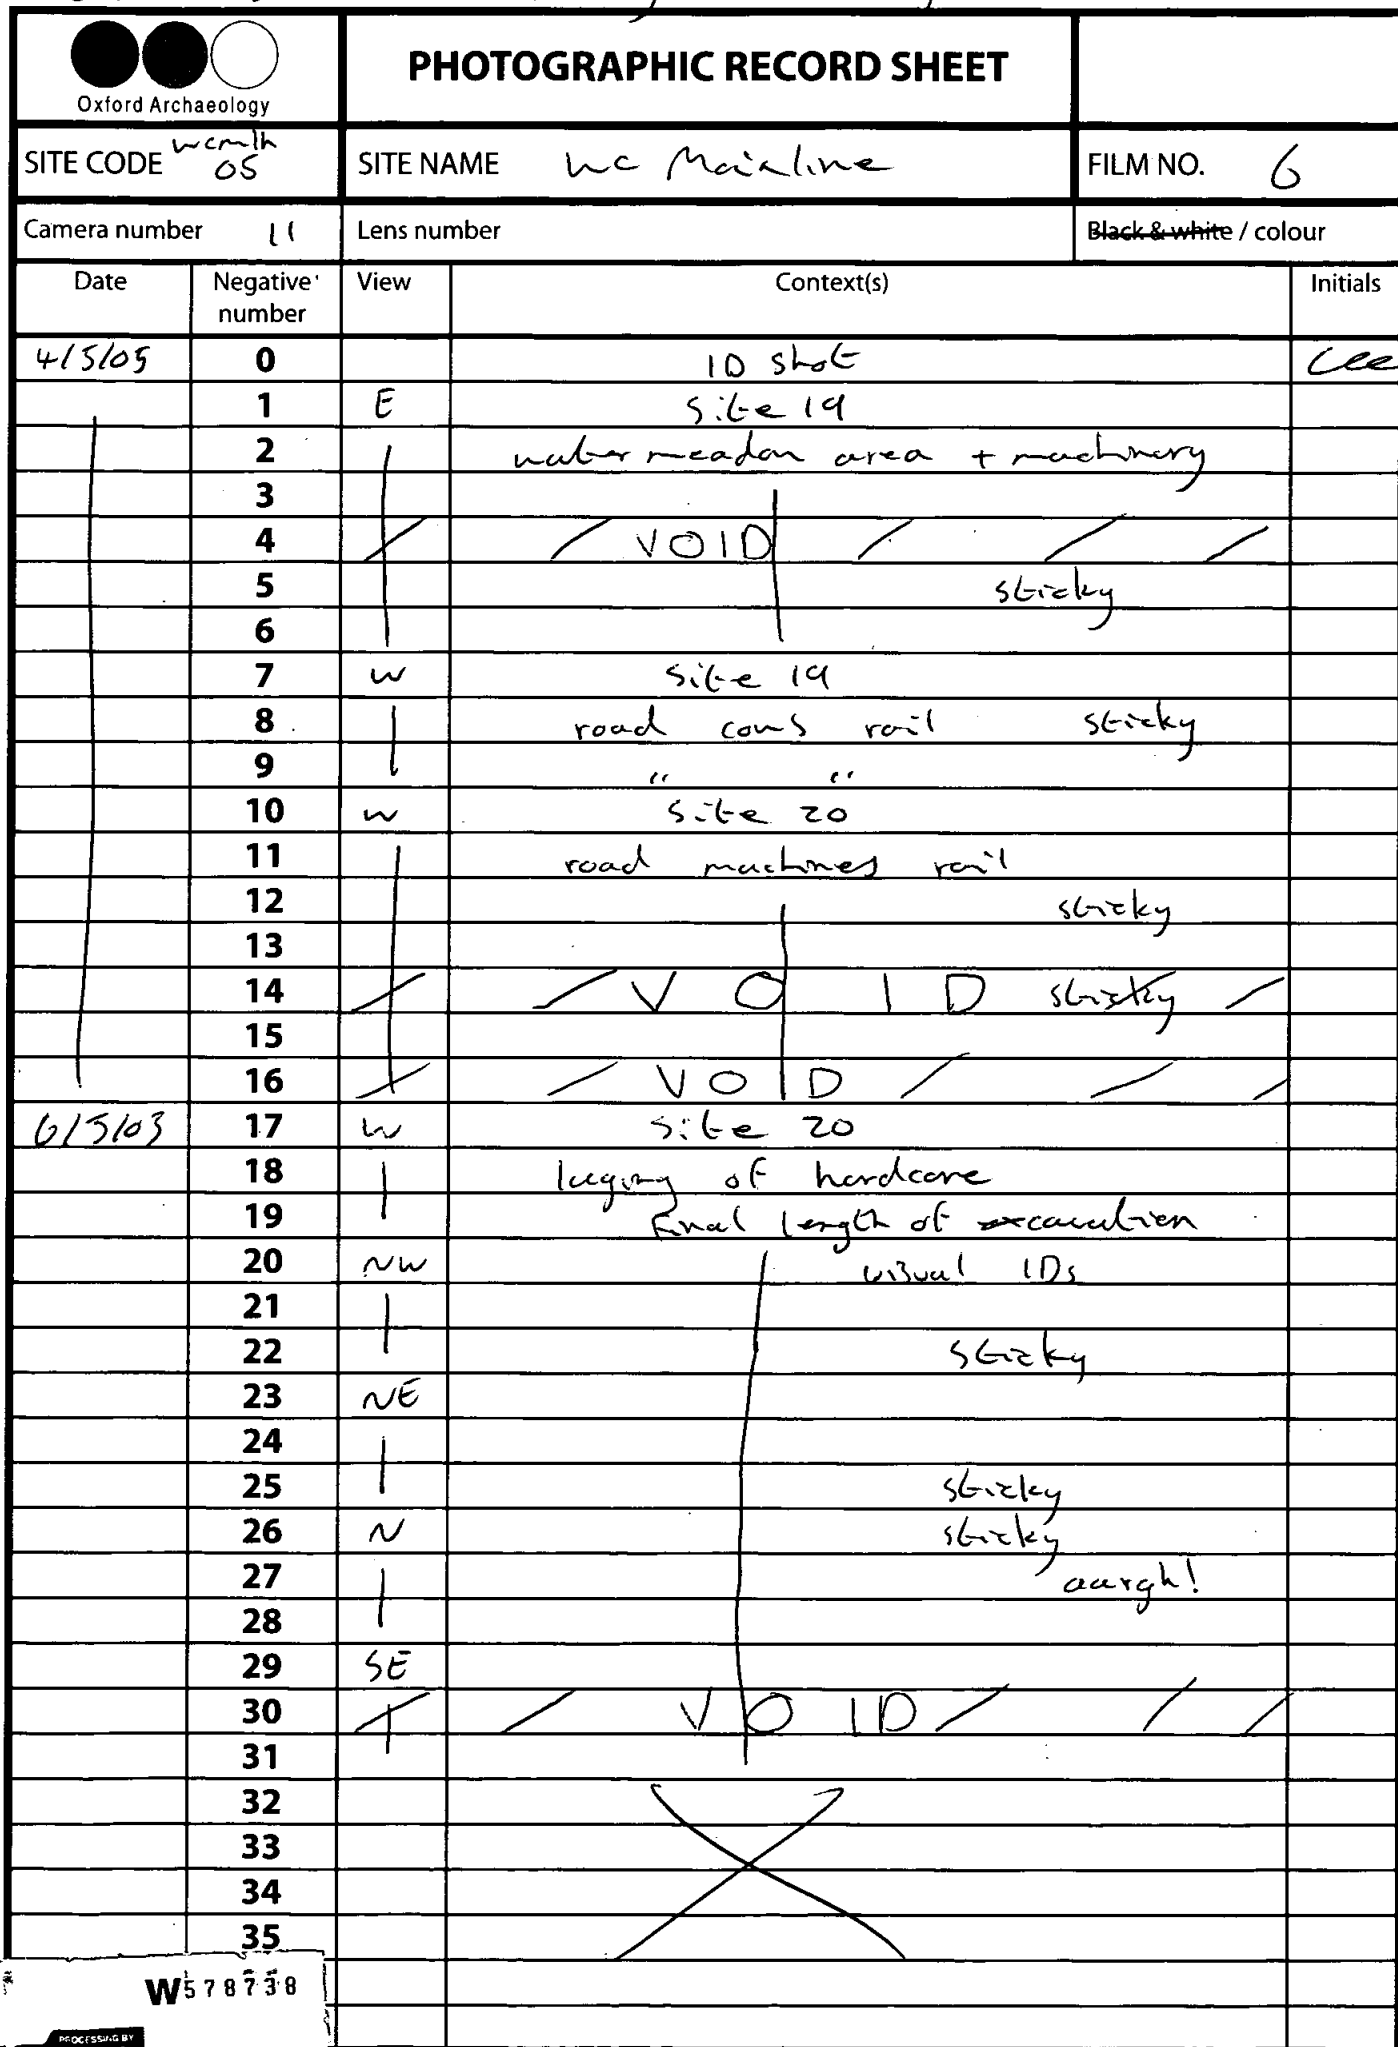 PHOTOGRAPHIC RECORD SHEET
Oxford Archaeology
SITE CODE wcmlh 05 SITE NAME WC Mainline FILM NO. 6
Camera number 11 Lens number Black & white / colour
Date Negative number View Context(s) Initials
4/5/05 0 ID shot
1 E Site 19
2 water meadow area + machinery
3
4 / / VOID / / /
5 sticky
6
7 W Site 19
8 road cons rail sticky
9 " "
10 W Site 20
11 road machines rail
12 sticky
13
14 / / VOID sticky /
15
16 / / VOID / / /
6/5/03 17 W Site 20
18 of hardcore
19 final length of excavation
20 NW visual IDs
21
22 sticky
23 NE
24
25 sticky
26 N sticky
27 aargh!
28
29 SE
30 / / VOID / / /
31
32
33
34
35
W578738
PROCESSING BY